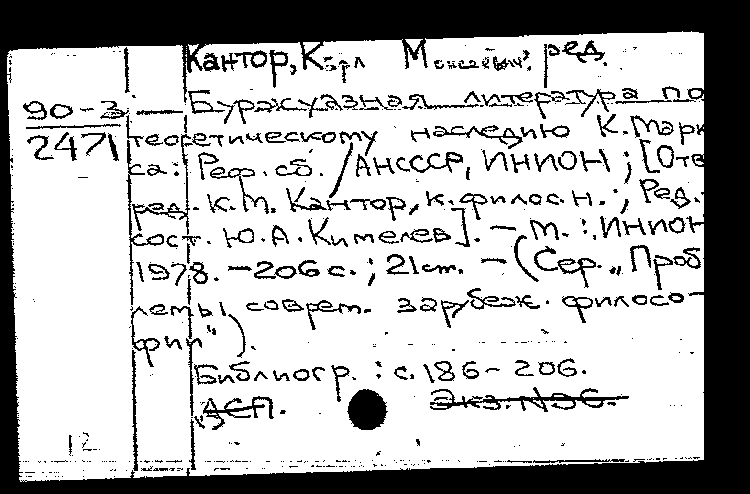 Кантор, Карл Моисеевич, ред.
90-3
2471
Буржуазная литература по
теоретическому наследию К. Марк
са: Реф. сб. / АНСССР, ИНИОН; [Отв
ред. К.М. Кантор, к.филос.н.; Ред.-
сост. Ю.А. Кимелев]. — М.: ИНИОН
1978. — 206 с.; 21 см. — (Сер. „Проб
лемы соврет. зарубеж. филосо-
фии").
Библиогр.: с. 186-206.
Экз. N36.
12